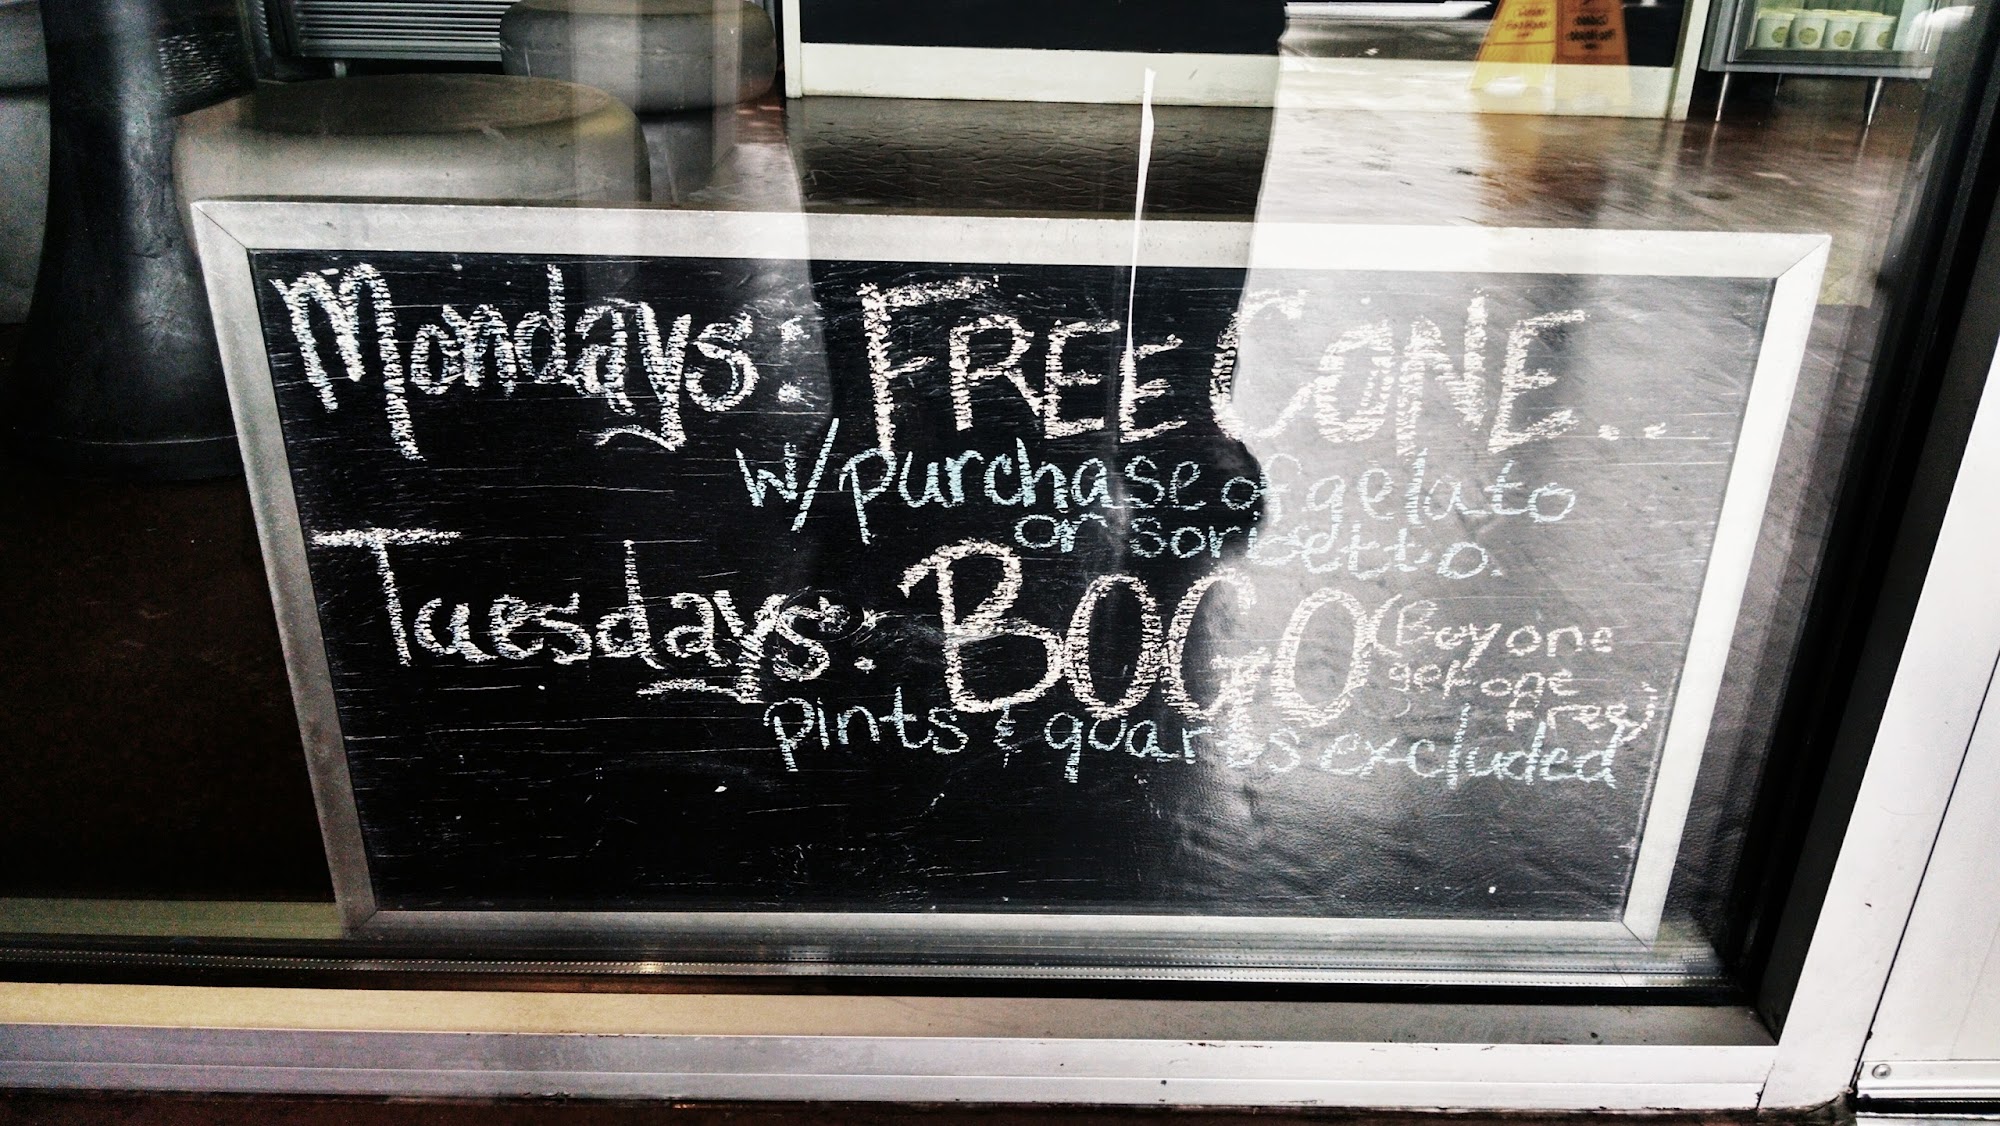 Mondays: FREE CONE..
w/purchase of gelato
or sorbetto.
Tuesdays: BOGO (Buy one
get one
free)
pints & quarts excluded